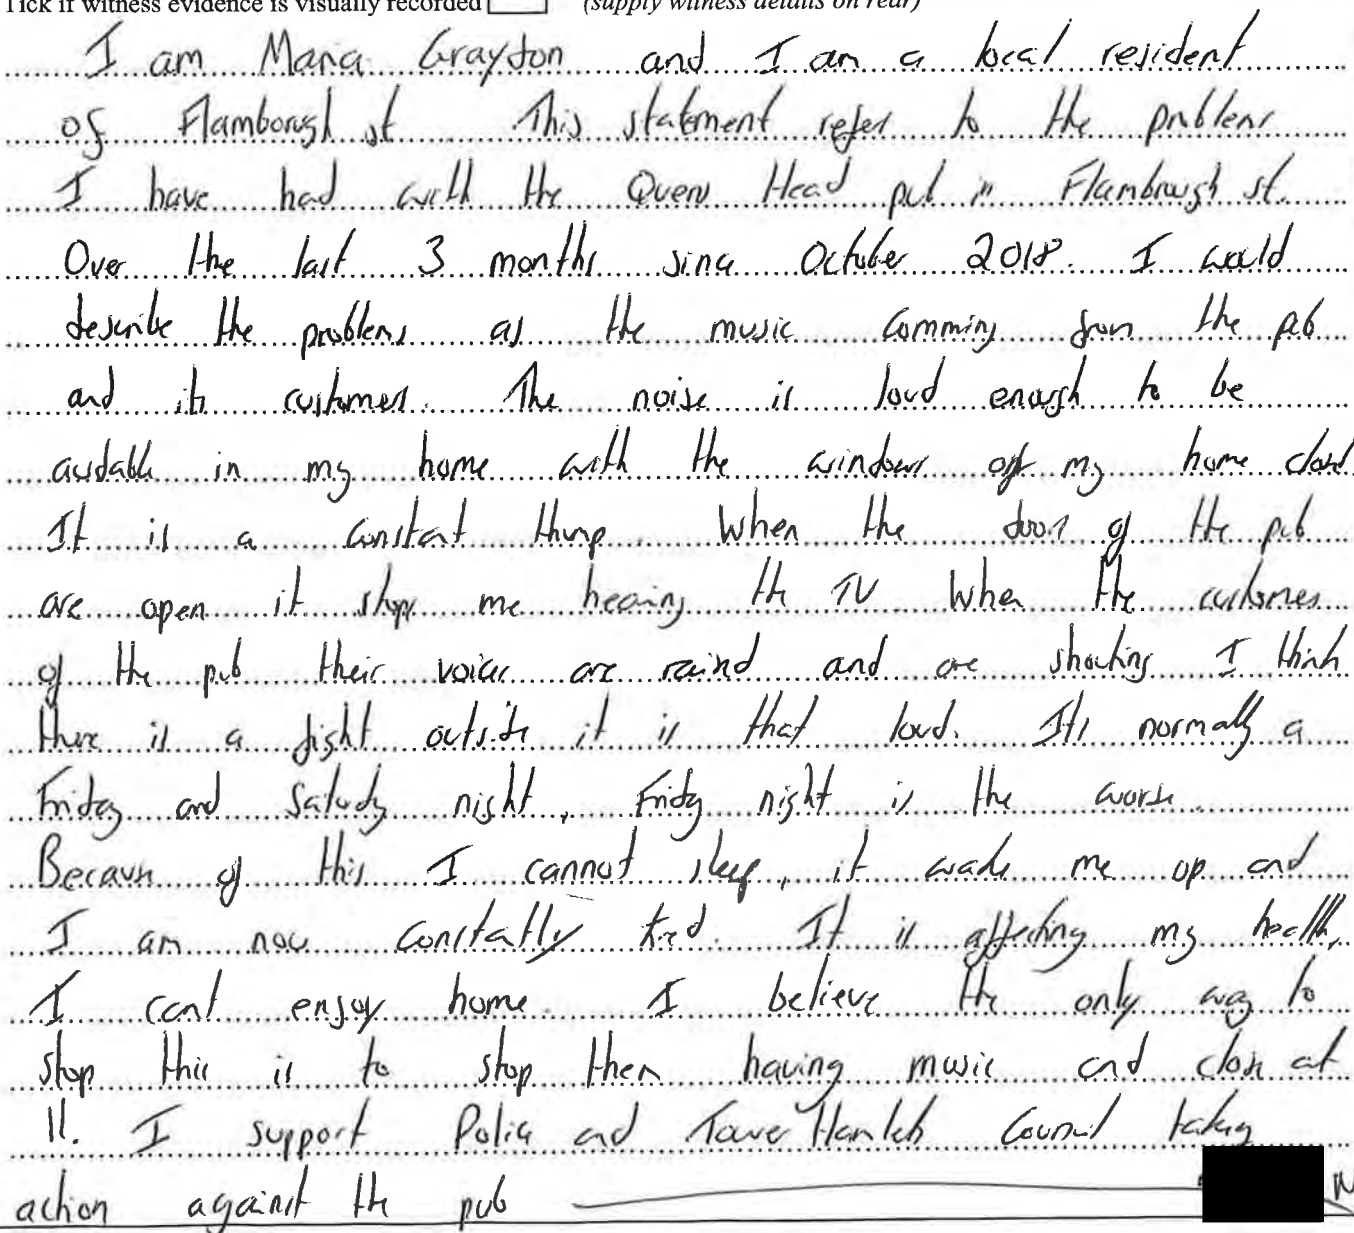 Tick if witness evidence is visually recorded (supply witness details on rear)
I am Maria Grayston and I am a local resident
of Flamborough st This statement refer to the problems
I have had with the Queens Head pub in Flambrough st.
Over the last 3 months since October 2018. I would
describe the problems as the music comming from the pub
and its customers. The noise is loud enough to be
audable in my home with the windows of my home closed
It is a constant thump. When the doors of the pub
are open it stops me hearing the TV When the customers
of the pub their voices are raised and are shouting I think
there is a fight outside it is that loud. Its normally a
Friday and Saturday night, Friday night is the worse.
Because of this I cannot sleep, it wakes me up and
I am now constatly tired. It is affecting my health,
I cant enjoy home. I believe the only way to
stop this is to stop them having music and close at
11. I support Police and Tower Hamlets Council taking
action against the pub